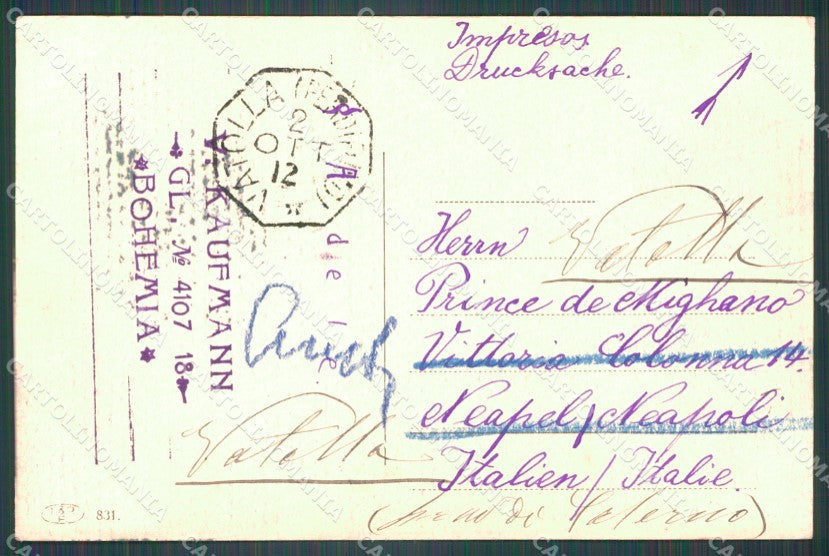 Impresos
Drucksache.
VATOLLA (PERDIFUMO)
2
OTT
12
A. KAUFMANN
GL. № 4107 18
BOHEMIA
Herrn
Vatolla
Prince de Mighano
Vittoria Colonna 14.
Neapel / Neapoli
Italien / Italie.
Vatolla
di Salerno)
831.
CARTOLINOMANIA